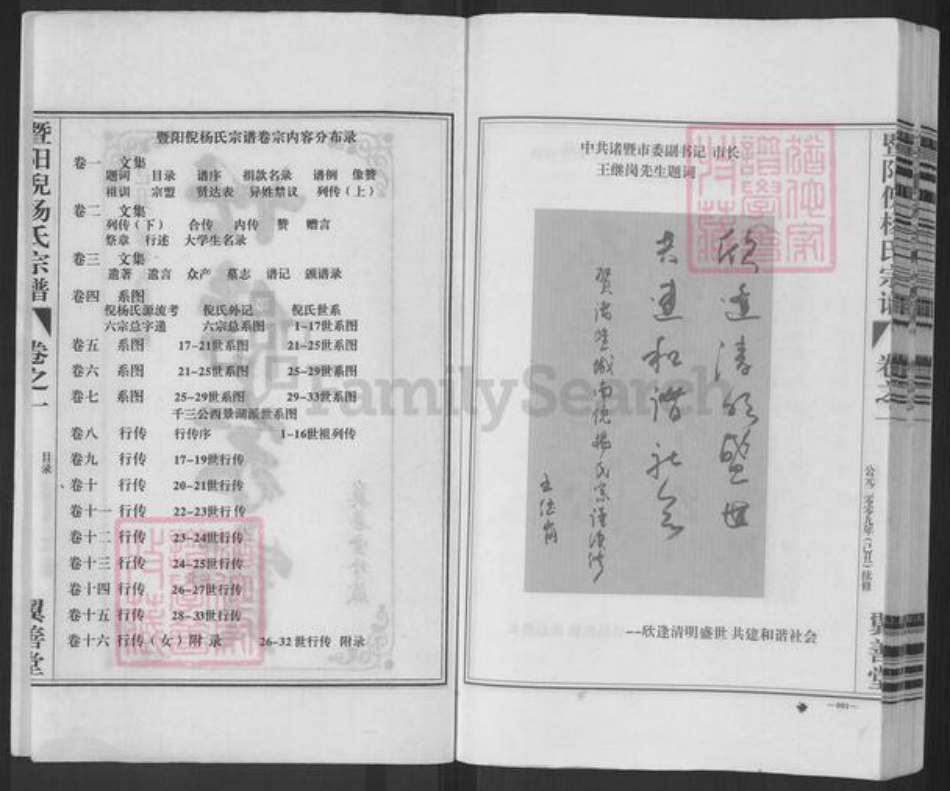 暨阳倪杨氏宗谱
卷之一
目录
翼善堂
暨阳倪杨氏宗谱卷宗内容分布录
卷一 文集
题词 目录 谱序 捐款名录 谱例 像赞
祖训 宗盟 贤达表 异姓禁议 列传（上）
卷二 文集
列传（下） 合传 内传 赞 赠言
祭章 行述 大学生名录
卷三 文集
遗著 遗言 众产 墓志 谱记 颁谱录
卷四 系图
倪杨氏源流考 倪氏外记 倪氏世系
六宗总字递 六宗总系图 1-17世系图
卷五 系图 17-21世系图 21-25世系图
卷六 系图 21-25世系图 25-29世系图
卷七 系图 25-29世系图 29-33世系图
千三公西景湖派世系图
卷八 行传 行传序 1-16世祖列传
卷九 行传 17-19世行传
卷十 行传 20-21世行传
卷十一 行传 22-23世行传
卷十二 行传 23-24世行传
卷十三 行传 24-25世行传
卷十四 行传 26-27世行传
卷十五 行传 28-33世行传
卷十六 行传（女）附 录 26-32世行传 附录
中共诸暨市委副书记 市长
王继岗先生题词
欣逢清明盛世
共建和谐社会
贺诸暨城南倪杨氏宗谱续修
王继岗
---欣逢清明盛世 共建和谐社会
暨阳倪杨氏宗谱
卷之一
公元二零零九年（己丑）续修
翼善堂
—001—
FamilySearch